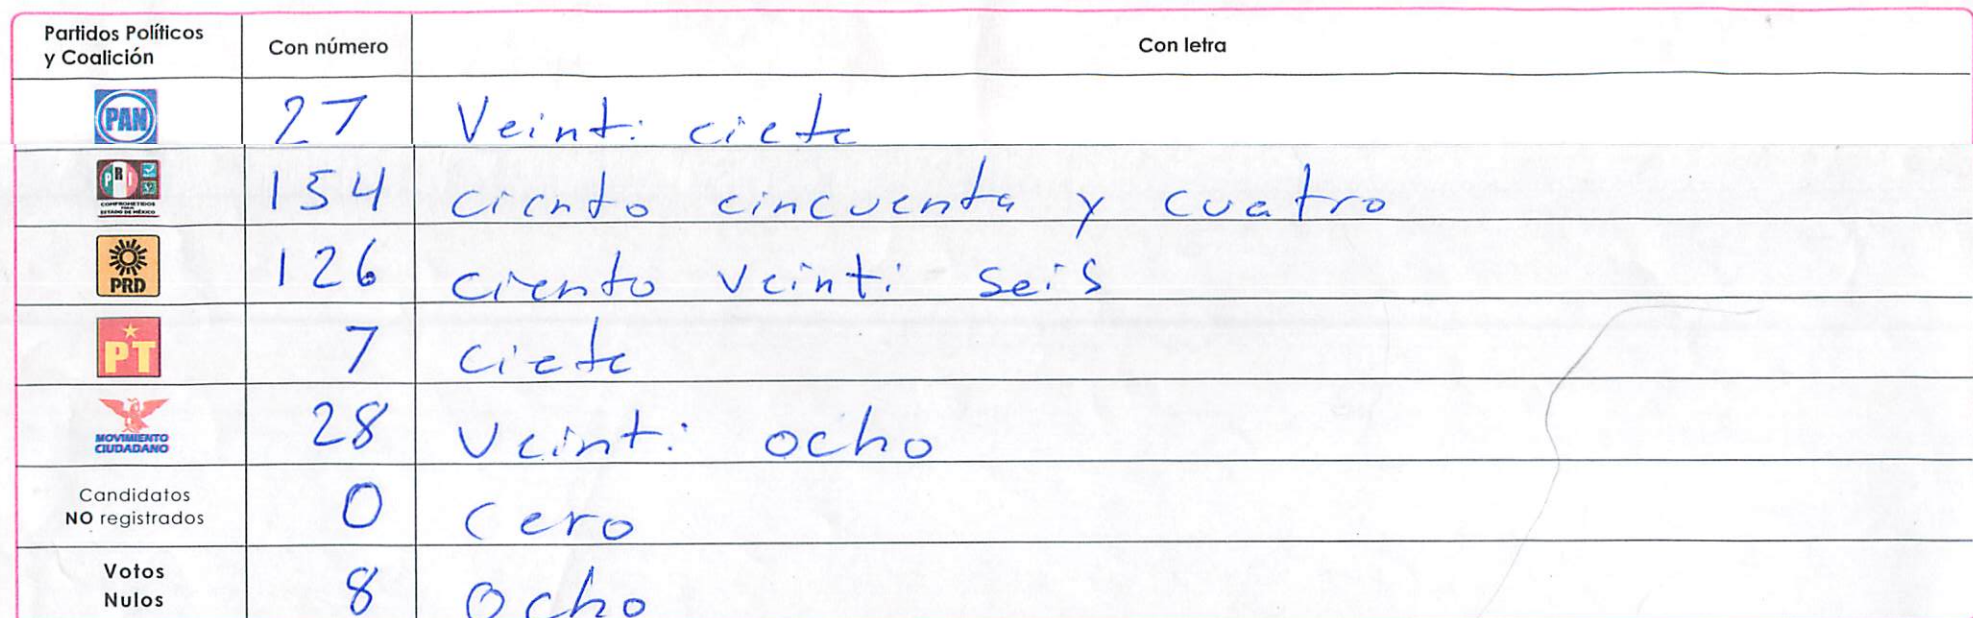 Partidos Políticos y Coalición Con número Con letra
PAN 27 Veinti ciete
PRI COMPROMETIDOS ESTADO DE MÉXICO 154 ciento cincuenta y cuatro
PRD 126 ciento veinti seis
PT 7 ciete
MOVIMIENTO CIUDADANO 28 veinti ocho
Candidatos NO registrados 0 cero
Votos Nulos 8 ocho